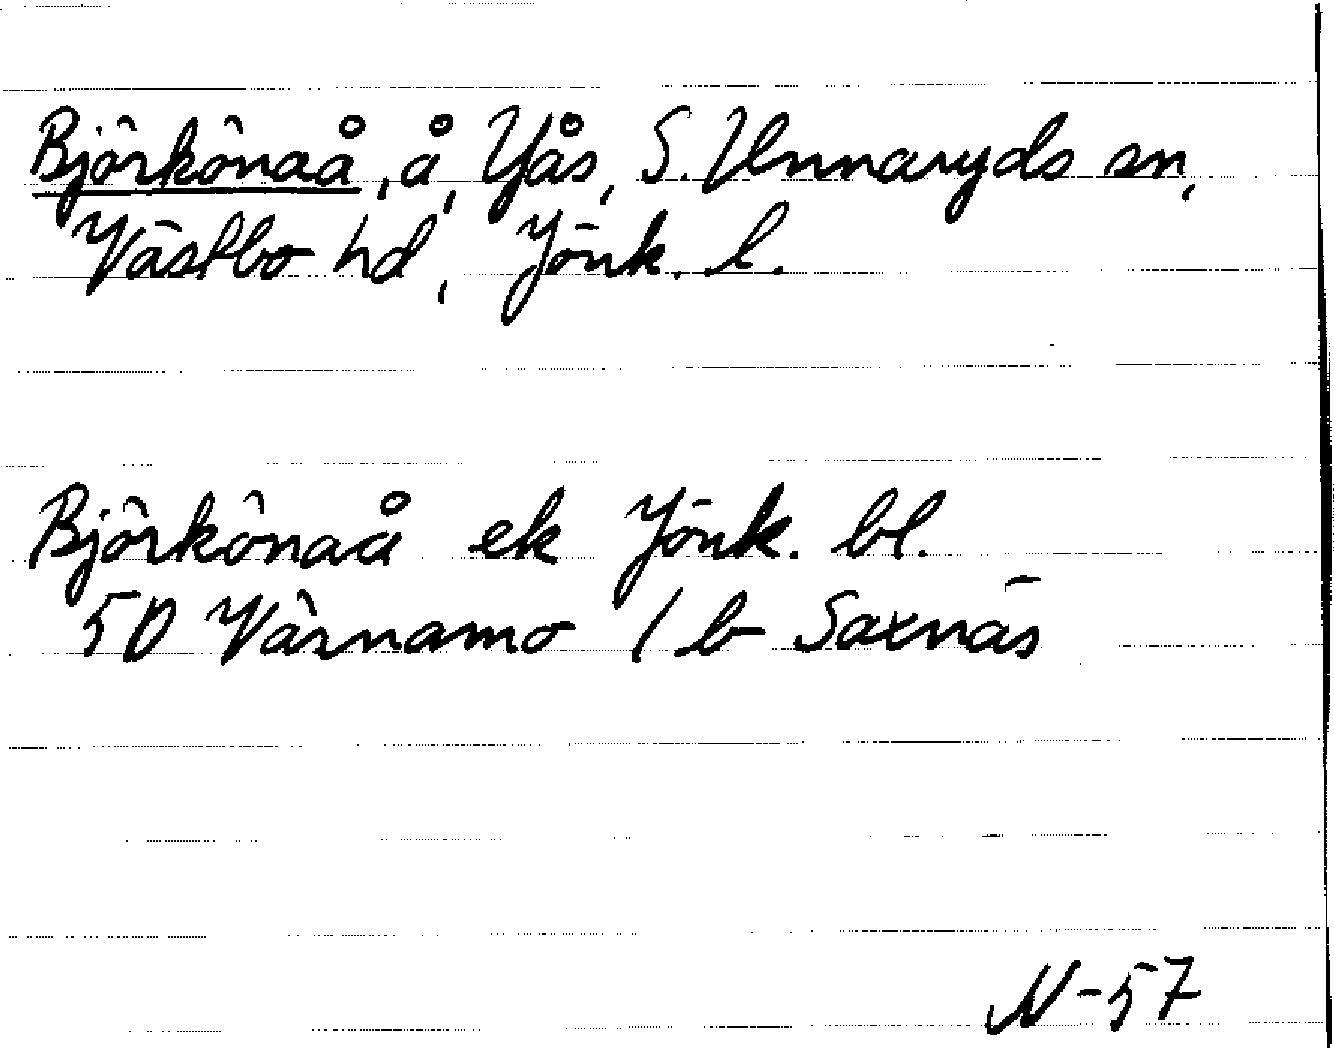 Björkönaå, å, Yås, S. Unnaryds sn,
Västbo hd, Jönk. l.
Björkönaå ek Jönk. bl.
5D Värnamo 1 b Saxnäs
N-57